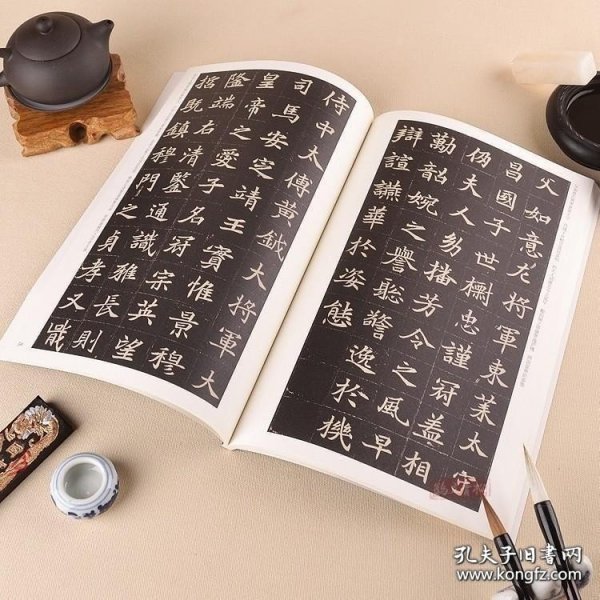 父如意左將軍東萊太守
昌國子世櫚忠謹冠盖相
仍夫人幼播芳令之風早
韶婉之譽聡警逸於機
辯諠讌華於姿態
侍中太傅黃鉞大將軍大
司馬安定靖王實惟景穆
皇帝之愛子名冠宗英望
隆端右清鑒通識雅長則
既鎮穆門之貞孝又戢
孔夫子旧书网
www.kongfz.com